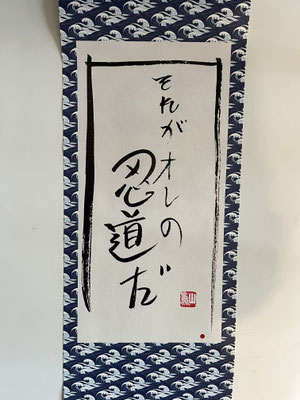 それが
オレの
忍道だ